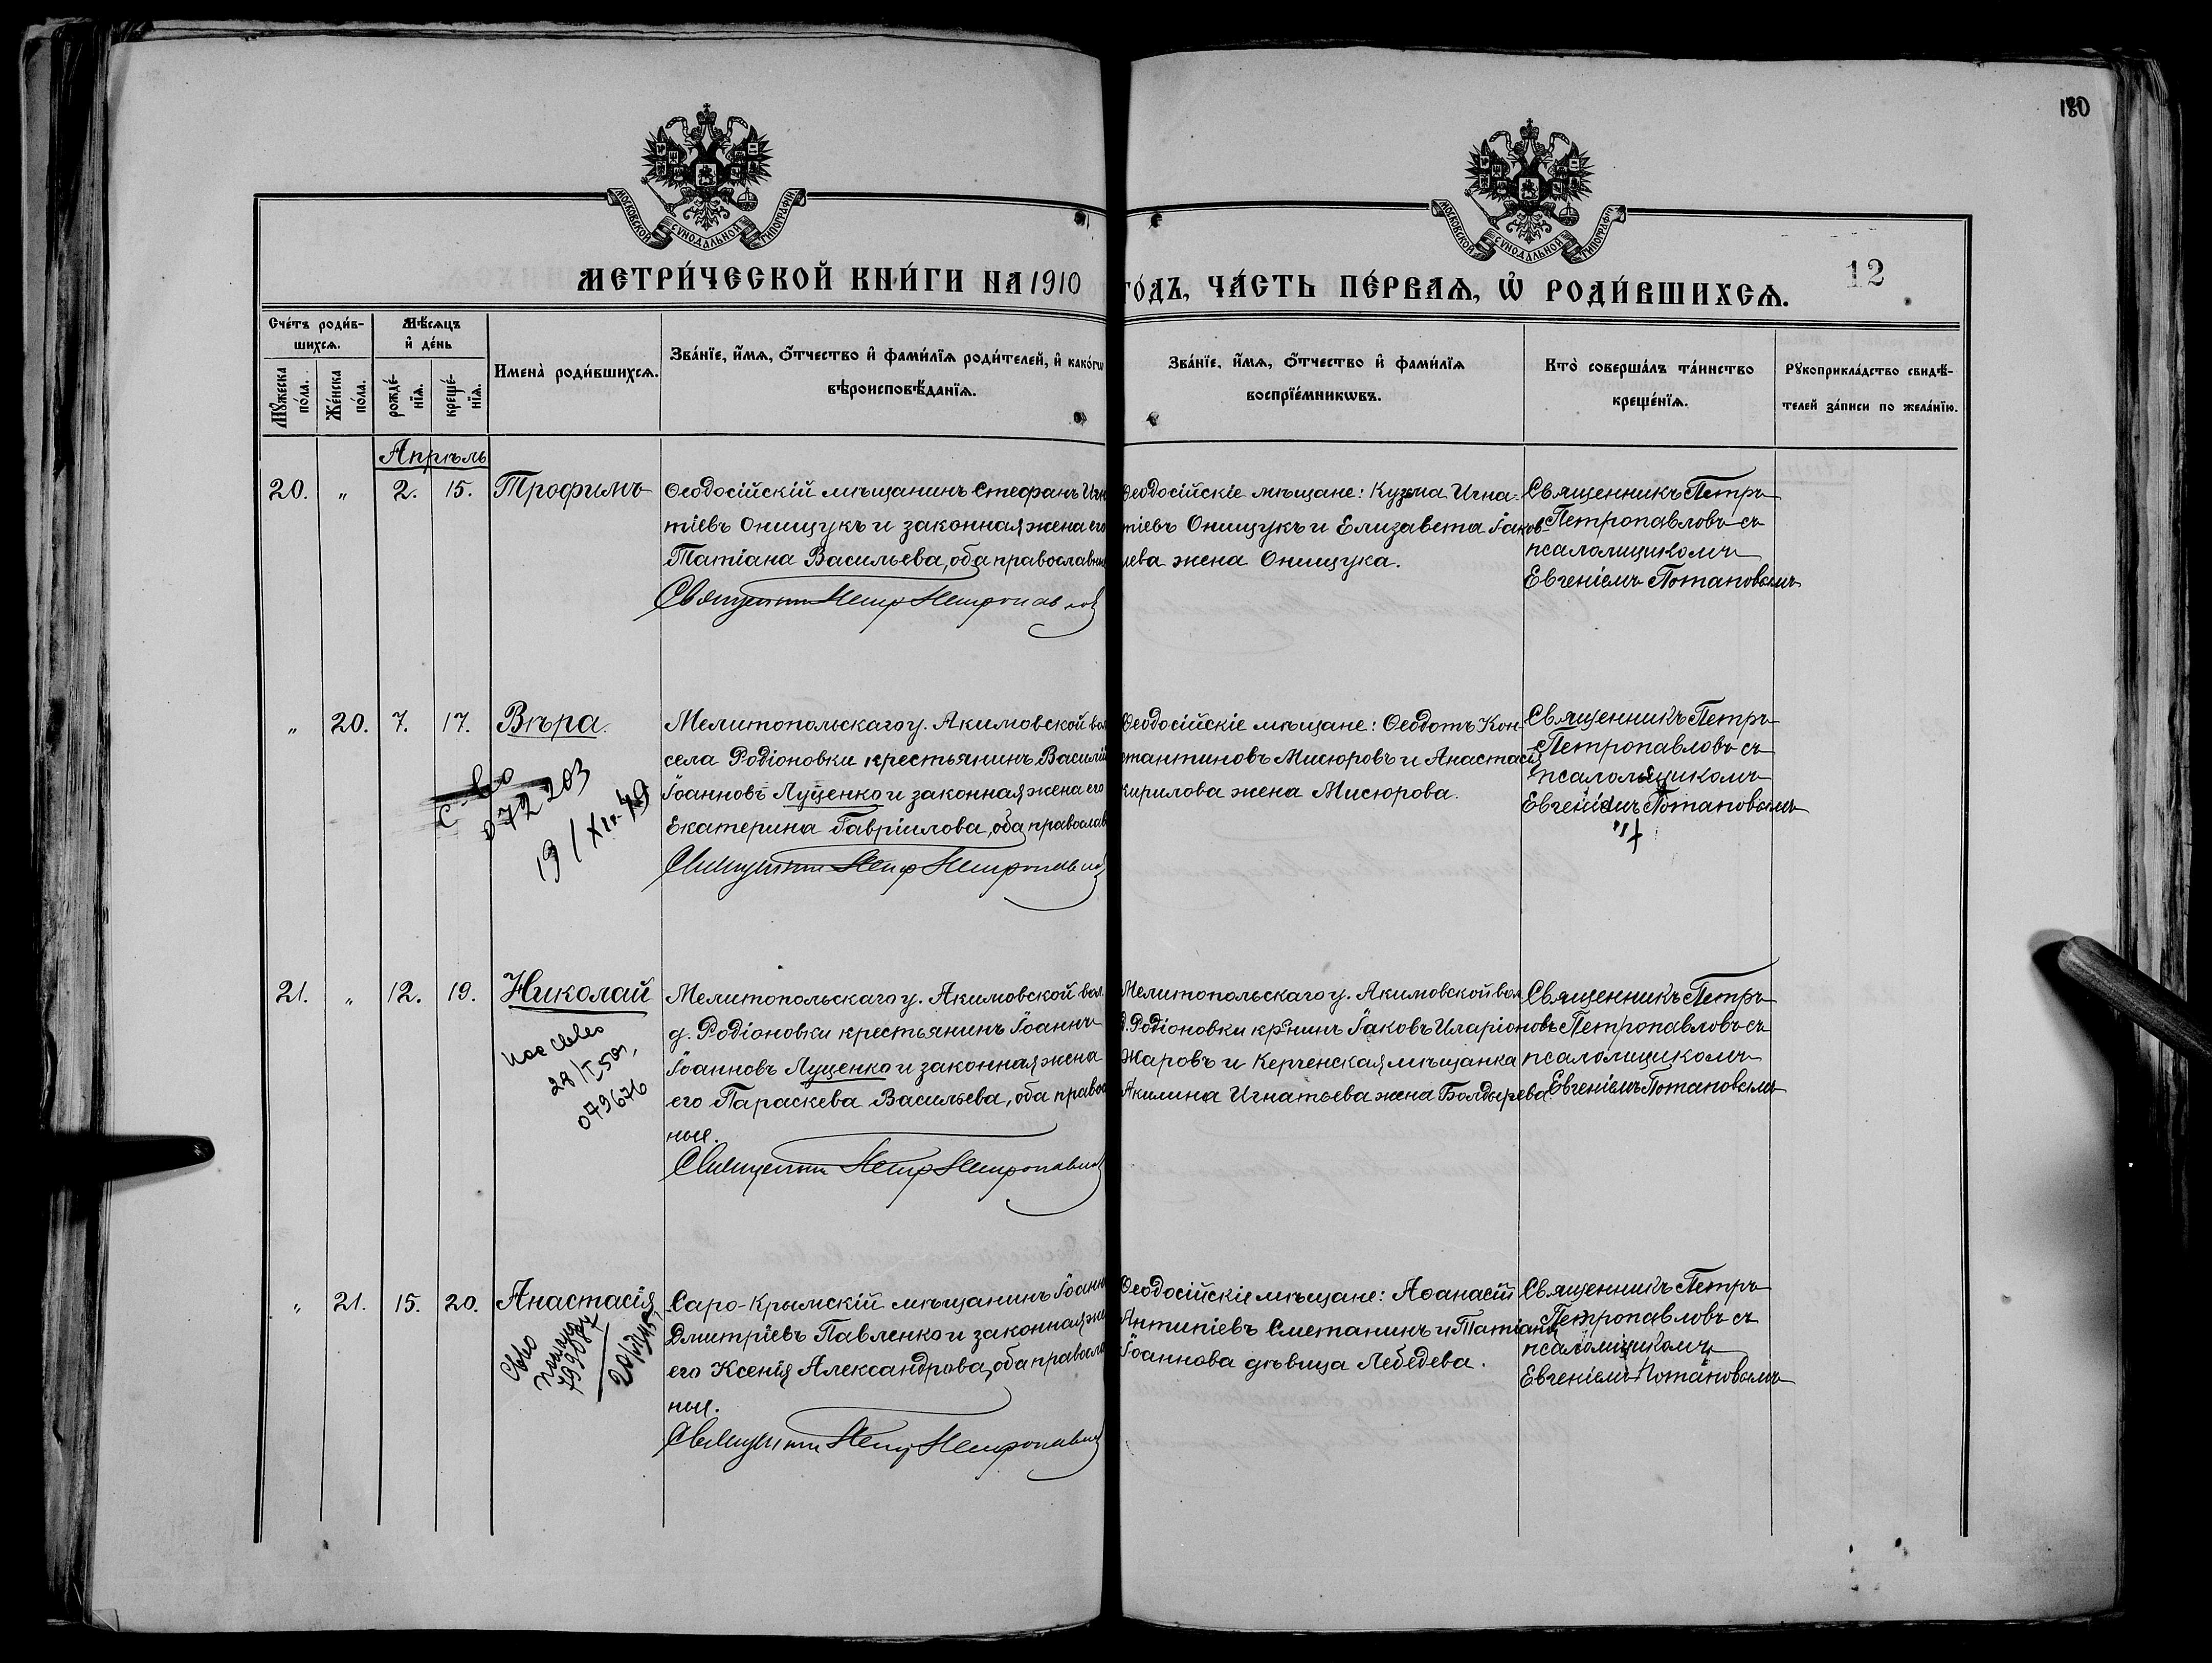 180
МОСКОВСКОЙ СУНОДАЛЬНОЙ ТИПОГРАФІИ
МОСКОВСКОЙ СУНОДАЛЬНОЙ ТИПОГРАФІИ
МЕТРИ́ЧЕСКОЙ КНИ́ГИ НА 1910 ГО́ДЪ, ЧА́СТЬ ПЕ́РВАѦ, Ѡ҆ РОДИ́ВШИХСѦ.
12
Сче́тъ роди́в-
шихсѧ.
Мѣ́сѧцъ
и҆ де́нь
Мꙋ́жеска по́ла.
Же́нска по́ла.
рожде́-
нїѧ.
креще́-
нїѧ.
Имена̀ роди́вшихсѧ.
Зва́нїе, и҆́мѧ, ѻ҆́тчество и҆ фами́лїѧ роди́телей, и҆ како́гѡ
вѣроисповѣ́данїѧ.
Зва́нїе, и҆́мѧ, ѻ҆́тчество и҆ фами́лїѧ
воспрїе́мникѡвъ.
Кто̀ соверша́лъ та́инство
креще́нїѧ.
Рꙋкоприкла́дство свидѣ́-
телей за́писи по жела́нїю.
Апрѣль
20. „ 2. 15. Трофимъ
Ѳеодосійскій мѣщанинъ Стефанъ Игн
тіевъ Онищукъ и законная жена его
Татіана Васильева, оба православн
Священникъ Петръ Петропавлов
Ѳеодосійскіе мѣщане: Кузьма Игна-
тіевъ Онищукъ и Елизавета Іаков-
лева жена Онищука.
Священникъ Петръ
Петропавловъ съ
псаломщикомъ
Евгеніемъ Потаповымъ
„ 20. 7. 17. Вѣра.
072203
19/XII-49
Мелитопольскаго у. Акимовской вол
села Родіоновки крестьянинъ Василій
Іоанновъ Луценко и законная жена его
Екатерина Гавріилова, оба православ
Священникъ Петръ Петропавлов
Ѳеодосійскіе мѣщане: Ѳеодотъ Кон-
стантиновъ Мисюровъ и Анастасія
Кирилова жена Мисюрова.
Священникъ Петръ
Петропавловъ съ
псаломщикомъ
Евгеніемъ Потаповымъ
21. „ 12. 19. Николай
28/I 50г,
079676
Мелитопольскаго у. Акимовской вол.
д. Родіоновки крестьянинъ Іоаннъ
Іоанновъ Луценко и законная жена
его Параскева Васильева, оба правос
ные.
Священникъ Петръ Петропавлов
Мелитопольскаго у. Акимовской вол
д. Родіоновки кр-нинъ Іаковъ Иларіоновъ
Жаровъ и Керченская мѣщанка
Акилина Игнатьева жена Болдырева
Священникъ Петръ
Петропавловъ съ
псаломщикомъ
Евгеніемъ Потаповымъ
„ 21. 15. 20. Анастасія
Старо-Крымскій мѣщанинъ Іоанн
Дмитріевъ Павленко и законная же
его Ксенія Александрова, оба правосла
ные.
Священникъ Петръ Петропавлов
Ѳеодосійскіе мѣщане: Аѳанасій
Антипіевъ Сметанинъ и Татіана
Іоаннова дѣвица Лебедева.
Священникъ Петръ
Петропавловъ съ
псаломщикомъ
Евгеніемъ Потаповымъ